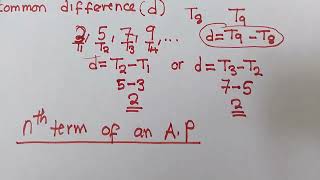 common difference (d)
T8 T9
3, 5, 7, 9, ...
T1 T2 T3 T4
d = T9 - T8
d = T2 - T1 or d = T3 - T2
5 - 3 7 - 5
2 2
nth term of an A.P